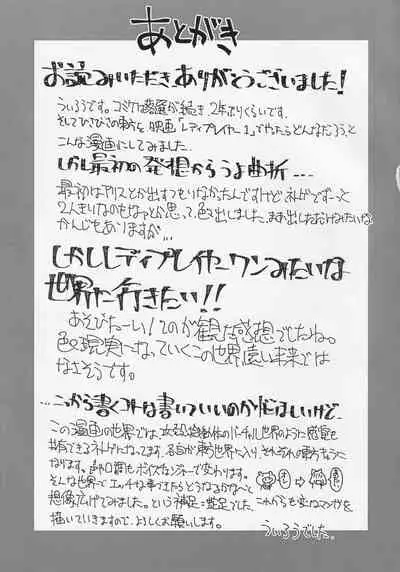 あとがき
お読みいただき、ありがとうございました!
ういろうです。コミケは 選が続き、2年ぶりくらいです。
そしてひさびさの東方を、映画「レディプレイヤー1」でやったらどんなだろう、と
こんな漫画にしてみました。
しかし最初の発想からうよ曲折…
最初はアリスとか出すつもりなかったんですけど、ネトゲでずーっと
2人きりなのもな、とか思って、色々出しました。まあ出しただけみたいな
かんじもありますが…
しかしレディプレイヤーワンみたいな
世界に行きたい!!
あそびたーい!てのが観た感想でしたね。
色々現実になっていくこの世界、遠い未来では
なさそうです。
…ここから書くコトは書いていいのか 
この漫画の世界では、 バーチャル世界のように感覚を
共有できるネトゲになってます。各自が東方世界に入り、それぞれの東方キャラに
なります。声や口調もボイスチェンジャーで変わります。
そんな世界でエッチな事できたらどうなるかな〜と
想像広げてみました。という補足と蛇足でした。これからも変なマンガを
描いていきますので、よろしくお願いします。
ういろうでした。